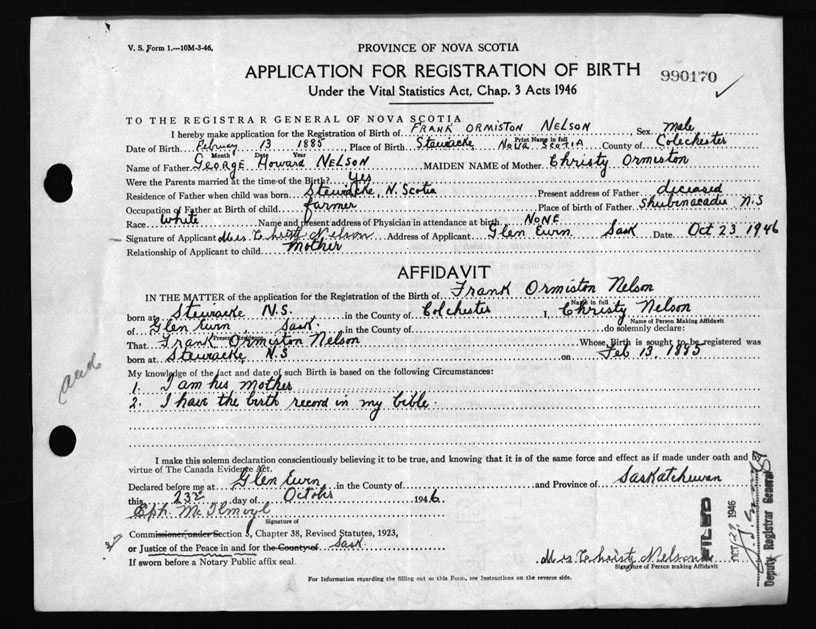 V. S. Form 1.—10M-3-46.
PROVINCE OF NOVA SCOTIA
APPLICATION FOR REGISTRATION OF BIRTH
990170
Under the Vital Statistics Act, Chap. 3 Acts 1946
TO THE REGISTRAR GENERAL OF NOVA SCOTIA
I hereby make application for the Registration of Birth of FRANK ORMISTON NELSON, Sex Male
Print Name in full
Date of Birth February 13 1885, Place of Birth Stewiacke NOVA SCOTIA County of Colechester
Month Date Year
Name of Father GEORGE Howard NELSON MAIDEN NAME of Mother Christy Ormiston
Were the Parents married at the time of the Birth? Yes
Residence of Father when child was born Stewiacke, N. Scotia Present address of Father deceased
Occupation of Father at Birth of child farmer Place of birth of Father Shubenacadie N.S
Race White Name and present address of Physician in attendance at birth NONE
Signature of Applicant Mrs Christy Nelson Address of Applicant Glen Ewen Sask Date Oct 23 1946
Relationship of Applicant to child Mother
AFFIDAVIT
IN THE MATTER of the application for the Registration of the Birth of Frank Ormiston Nelson
Name in full
born at Stewiacke N.S. in the County of Colchester I, Christy Nelson
Name of Person Making Affidavit
of Glen Ewen, Sask. in the County of do solemnly declare:
That Frank Ormiston Nelson Whose Birth is sought to be registered was
born at Stewiacke, N.S on Feb 13, 1885
My knowledge of the fact and date of such Birth is based on the following Circumstances:
1. I am his Mother
2. I have the birth record in my bible.
I make this solemn declaration conscientiously believing it to be true, and knowing that it is of the same force and effect as if made under oath and by
virtue of The Canada Evidence Act.
Declared before me at Glen Ewen in the County of and Province of Saskatchewan
this 23rd day of October 1946
Signature of
Commissioner under Section 5, Chapter 38, Revised Statutes, 1923,
or Justice of the Peace in and for the County of Sask.
If sworn before a Notary Public affix seal.
Mrs Christy Nelson
Signature of Person making Affidavit
FILED
OCT 29 1946
Deputy Registrar General
For Information regarding the filling out of this Form, see Instructions on the reverse side.